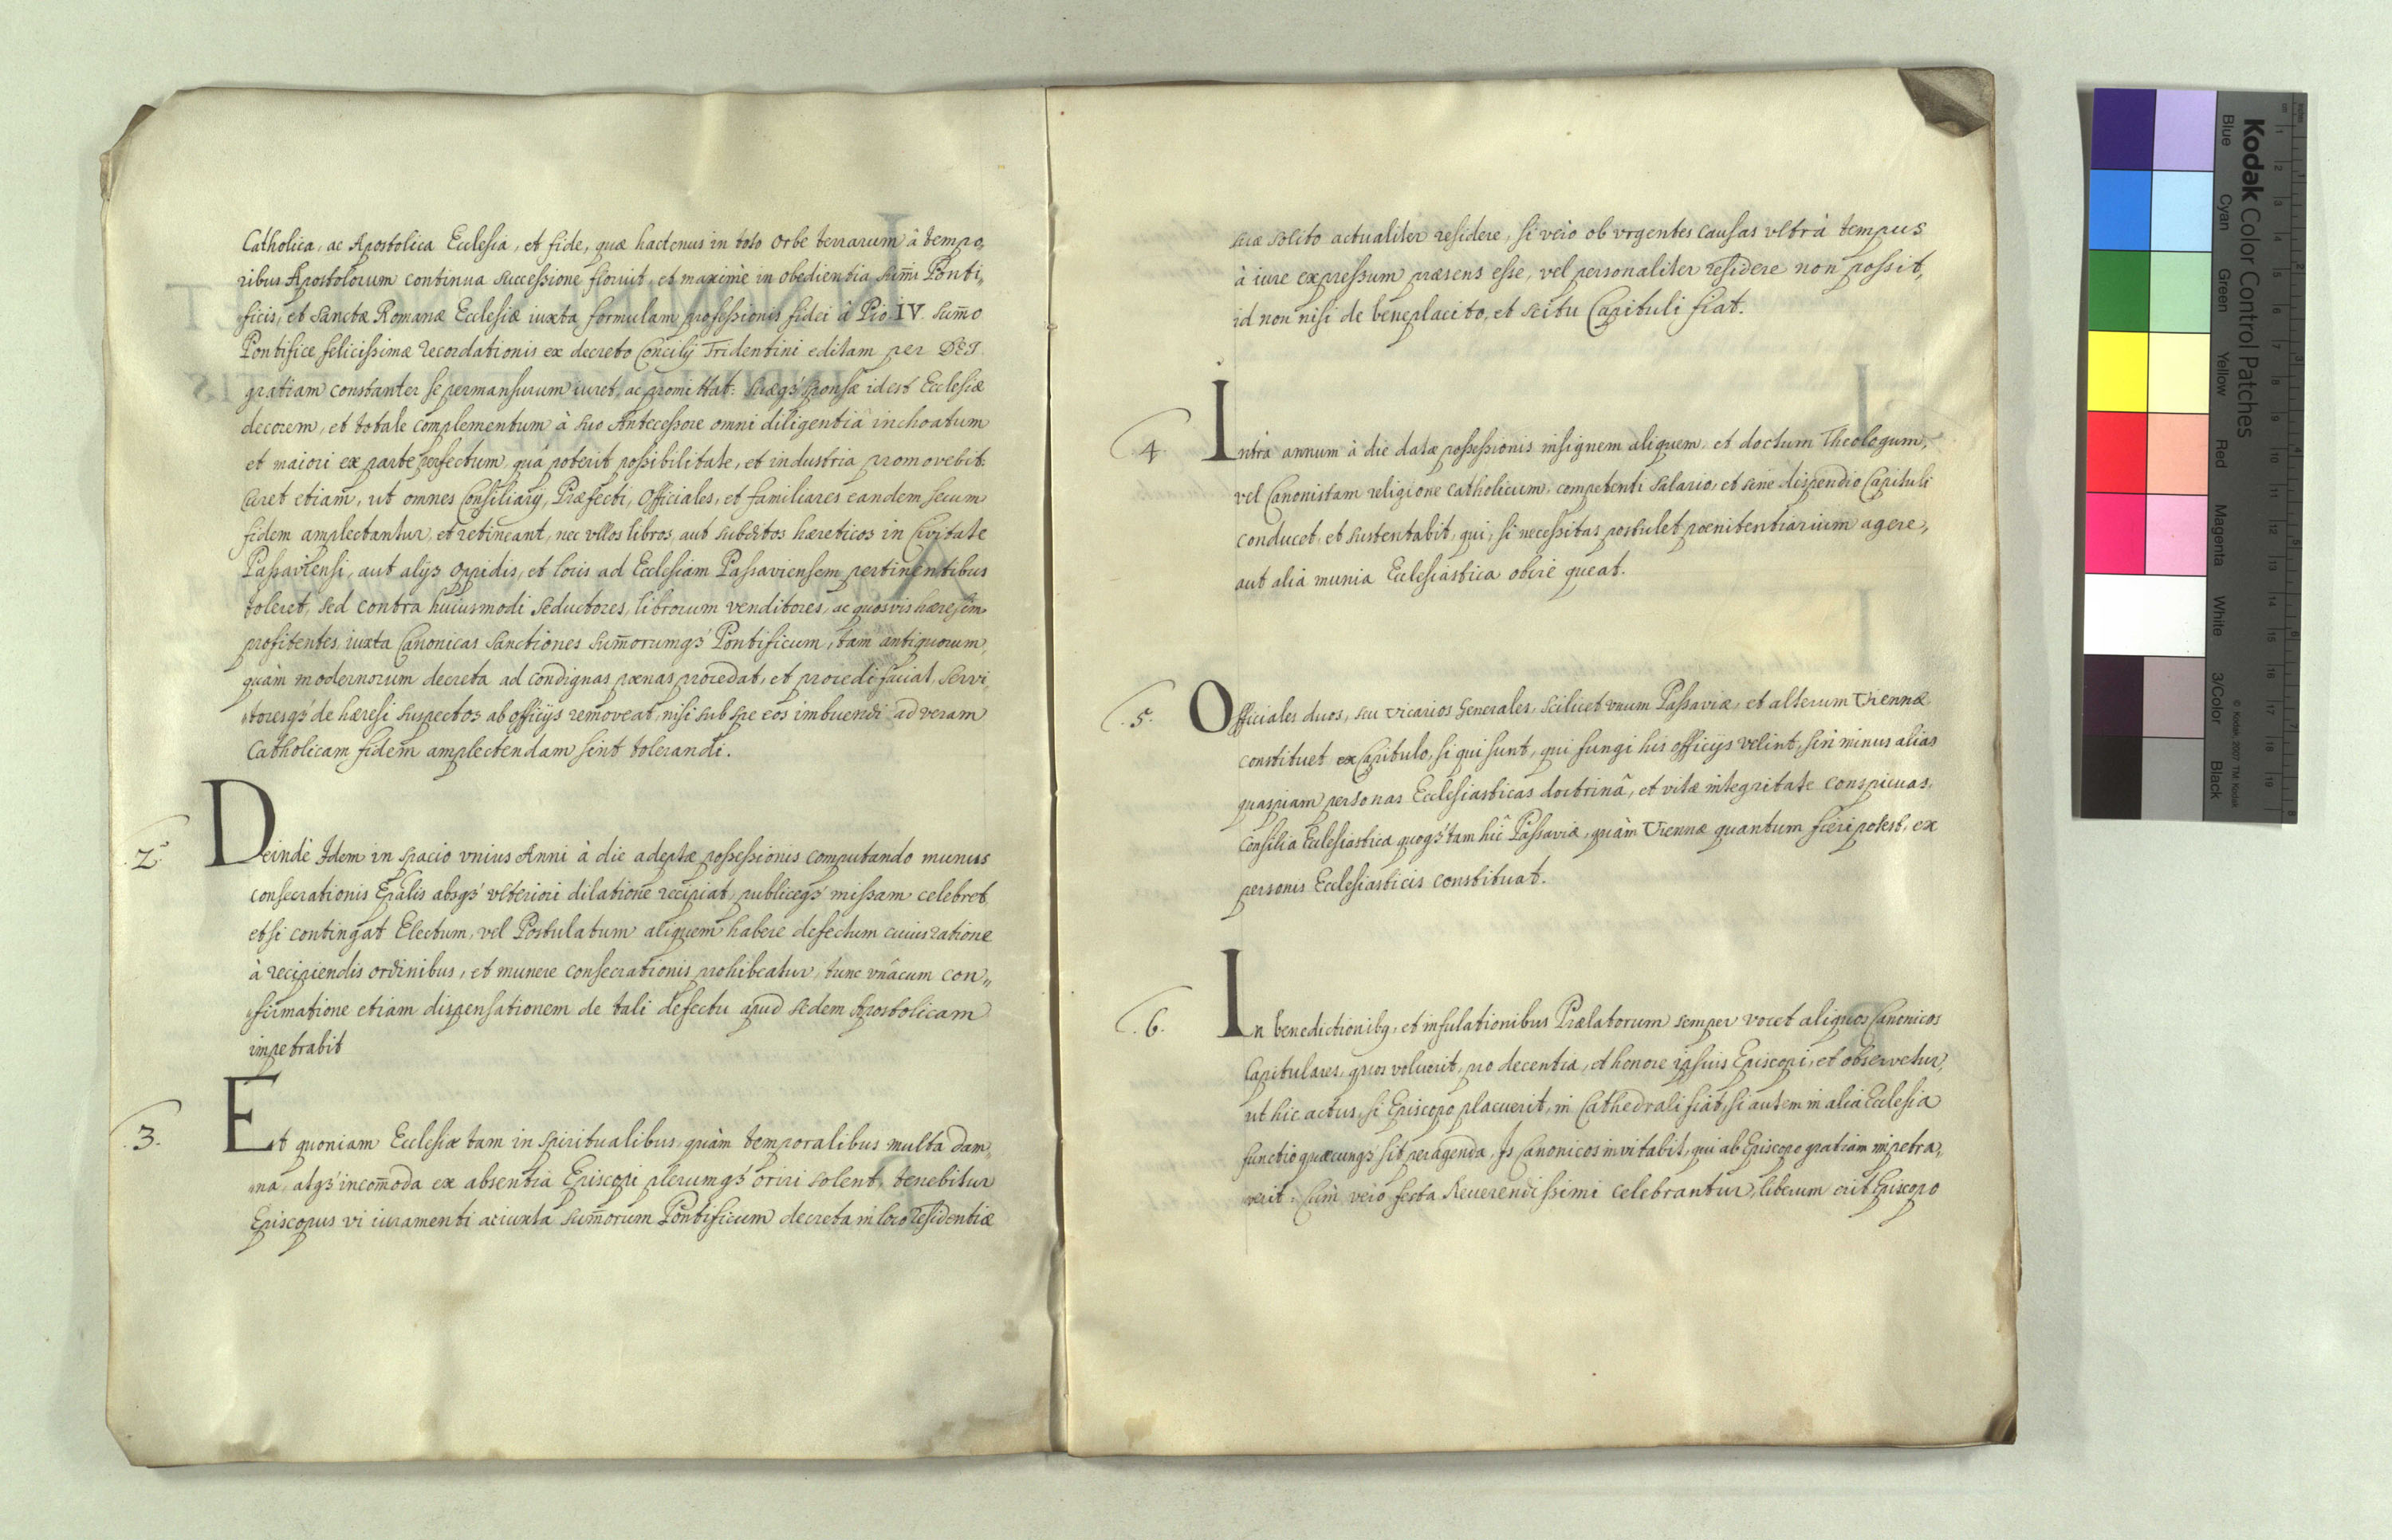 Catholica, ac Apostolica Ecclesia, et fide, quæ hactenus in toto Orbe terrarum à tempo„
ribus Apostolorum continua successione floruit, et maximè in obedientia Sum̄i Ponti„
ficis, et Sanctæ Romanæ Ecclesiæ iuxta formulam professionis fidei à Pio IV. Sum̄o
Pontifice felicissimæ recordationis ex decreto Concilij Tridentini editam per DEI
gratiam constanter se permansurum iuret, ac promittat: suæq3 sponsæ id est Ecclesiæ
decorem, et totale complementum à suo Antecessore omni diligentiâ inchoatum
et maiori ex parte perfectum, quâ poterit possibilitate, et industria promovebit:
Curet etiam, ut omnes Consiliarij, Præfecti, Officiales, et familiares eandem secum
fidem amplectantur, et retineant, nec vllos libros, aut subditos hæreticos in Civitate
Passaviensi, aut alijs oppidis, et locis ad Ecclesiam Passaviensem pertinentibus
toleret, sed contra huiusmodi seductores, librorum venditores, ac quosvis hæresim
profitentes, iuxta Canonicas Sanctiones Sum̄orumq3 Pontificum, tam antiquorum,
quàm modernorum decreta ad condignas pœnas procedat, et procedi faciat, Servi„
„toresq3 de hæresi suspectos ab officijs removeat, nisi sub spe eos imbuendi ad veram
Catholicam fidem amplectendam sint tolerandi.
2. Deindè Idem in spacio vnius Anni à die adeptæ possessionis computando munus
consecrationis Ep̄alis absq3 vlteriori dilatione recipiat, publiceq3 missam celebret
et si contingat Electum, vel Postulatum aliquem habere defectum cuius ratione
à recipiendis ordinibus, et munere consecrationis prohibeatur, tunc vnâcum con„
„firmatione etiam dispensationem de tali defectu apud Sedem Apostolicam
impetrabit
3. Et quoniam Ecclesiæ tam in spiritualibus, quàm temporalibus multa dam„
„na, atq3 incom̄oda ex absentia Episcopi plerumq3 oriri solent, tenebitur
Episcopus vi iuramenti ac iuxta Sum̄orum Pontificum decreta in loco Residentiæ
suæ solito actualiter residere, si vero ob vrgentes causas vltrà tempus
à iure expressum præsens esse, vel personaliter residere non possit,
id non nisi de beneplacito, et scitu Capituli fiat.
4. Intrà annum à die datæ possessionis insignem aliquem, et doctum Theologum,
vel Canonistam religione catholicum, competenti salario, et sine dispendio Capituli
conducet, et sustentabit, qui, si necessitas postulet pœnitentiarium agere,
aut alia munia Ecclesiastica obire queat.
5. Officiales duos, seu Vicarios Generales, scilicet vnum Passaviæ, et alterum Viennæ
constituet ex Capitulo, si qui sunt, qui fungi his officijs velint, sin minus alias
quaspiam personas Ecclesiasticas doctrinâ, et vitæ integritate conspicuas,
Consilia Ecclesiastica quoq3 tam hîc Passaviæ, quàm Viennæ quantum fieri potest, ex
personis Ecclesiasticis constituat.
6. In benedictionibq, et infulationibus Prælatorum semper vocet aliquos Canonicos
Capitulares, quos voluerit, pro decentia, et honore ipsius Episcopi, et observetur,
ut hic actus, si Episcopo placuerit, in Cathedrali fiat, si autem in alia Ecclesia
functio quæcunq3 sit peragenda, Is Canonicos invitabit, qui ab Episcopo gratiam impetra„
verit. Cùm vero festa Reuerendissimi celebrantur, liberum erit Episcopo
Kodak Color Control Patches
Blue
Cyan
Green
Yellow
Red
Magenta
White
3/Color
Black